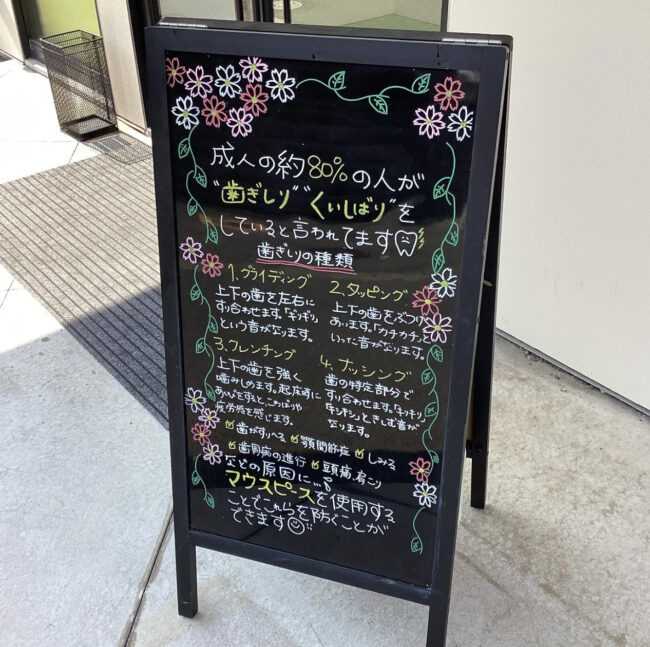 成人の約80%の人が
"歯ぎしり""くいしばり"を
していると言われてます
歯ぎしりの種類
1.グライディング
上下の歯を左右に
すり合わせます。「ギリギリ」
という音がなります。
2.タッピング
上下の歯をぶつけ
あいます。「カチカチ」と
いった音がなります。
3.クレンチング
上下の歯を強く
噛みしめます。起床時に
あごがこわばりや
疲労感を感じます。
4.ナッシング
歯の特定部分で
すり合わせます。「ギッギッ」
「キシキシ」ときしむ音が
なります。
☑歯がすりへる ☑顎関節症 ☑しみる
☑歯周病の進行 ☑頭痛、肩こり
などの原因に...
マウスピースを使用する
ことでこれらを防ぐことが
できます